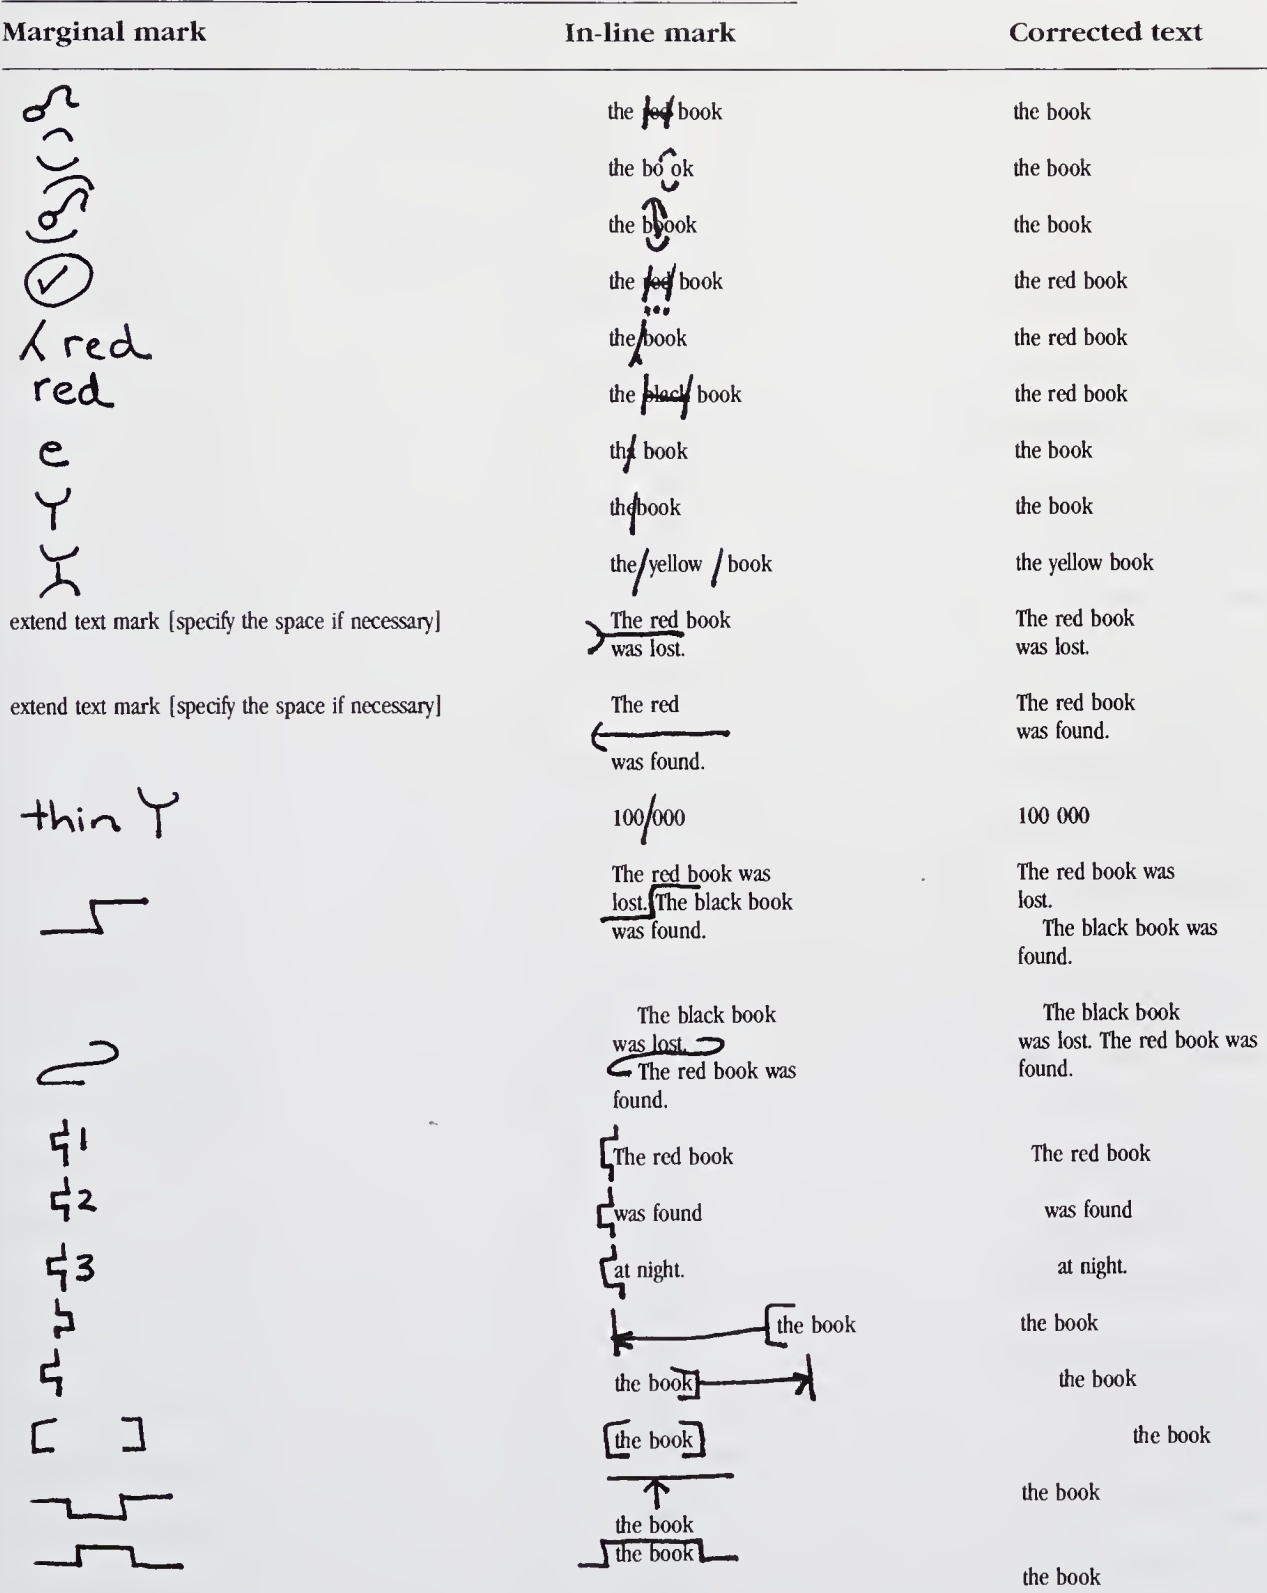 Marginal mark In-line mark Corrected text
the red book the book
the bo ok the book
the bbook the book
the red book the red book
red the book the red book
red the black book the red book
e the book
thebook the book
the yellow book the yellow book
extend text mark [specify the space if necessary] The red book The red book
was lost. was lost.
extend text mark [specify the space if necessary] The red The red book
was found.
was found.
thin 100 000 100 000
The red book was The red book was
lost. The black book lost.
was found. The black book was
found.
The black book The black book
was lost. was lost. The red book was
The red book was found.
found.
1 The red book The red book
2 was found was found
3 at night. at night.
the book the book
the book the book
[ ] [the book] the book
the book
the book
the book
the book